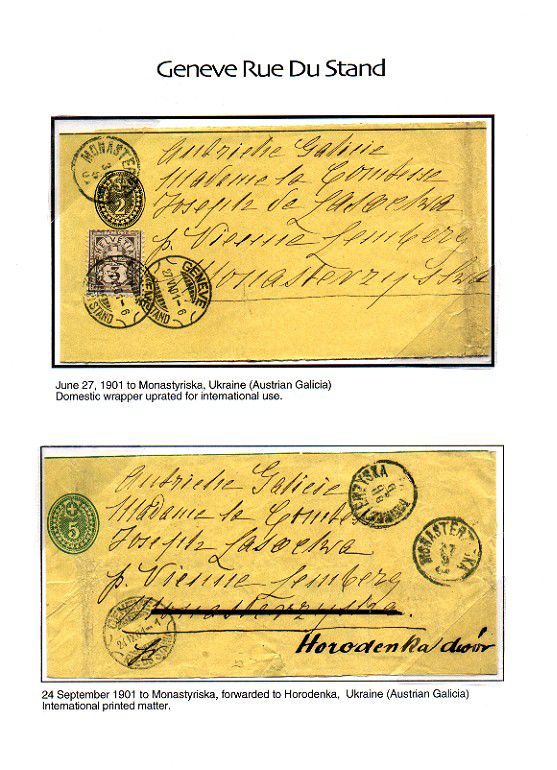 Geneve Rue Du Stand
MONASTERZ
2
Autriche Galicie
Madame la Comtesse
Joseph de Lasocka
p. Vienne Lemberg
Monasterzyska
HELVETIA
GENEVE
27 VI 01 - 6
STAND
June 27, 1901 to Monastyriska, Ukraine (Austrian Galicia)
Domestic wrapper uprated for international use.
5
Autriche Galicie
Madame la Comtesse
Joseph Lasocka
p. Vienne Lemberg
Monasterzyska.
Horodenka dwór
MONASTERZYSKA
24 September 1901 to Monastyriska, forwarded to Horodenka, Ukraine (Austrian Galicia)
International printed matter.